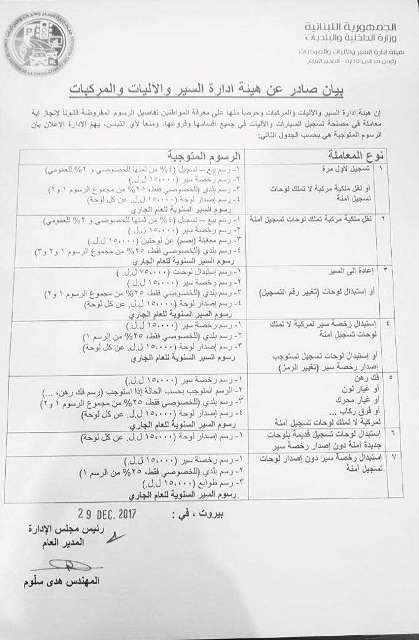 الجمهورية اللبنانية
وزارة الداخلية والبلديات
هيئة إدارة السير والآليات والمركبات
رئيس مجلس الإدارة - المدير العام
بيان صادر عن هيئة ادارة السير والآليات والمركبات
إن هيئة إدارة السير والآليات والمركبات وحرصاً منها على معرفة المواطنين تفاصيل الرسوم المفروضة قانونا لإنجاز أية
معاملة في مصلحة تسجيل السيارات والآليات في جميع أقسامها وفروعها، ومنعاً لأي التباس، يهم الإدارة الإعلان بأن
الرسوم المتوجبة هي بحسب الجدول التالي:
نوع المعاملة
الرسوم المتوجبة
١
تسجيل لأول مرة
أو نقل ملكية مركبة لا تملك لوحات
تسجيل آمنة
١- رسم بيع – تسجيل (٤% من ثمنها للخصوصي و ٢% للعمومي)
٢- رسم رخصة سير (١٥،٠٠٠ ل.ل.)
٣- رسم بلدي (للخصوصي فقط، ٢٥% من مجموع الرسوم ١ و٢)
٤- رسم إصدار لوحة (١٥،٠٠٠ ل.ل. عن كل لوحة)
رسوم السير السنوية للعام الجاري
٢
نقل ملكية مركبة تملك لوحات تسجيل آمنة
١- رسم بيع – تسجيل (٤% من ثمنها للخصوصي و ٢% للعمومي)
٢- رسم رخصة سير (١٥،٠٠٠ ل.ل.)
٣- رسم معاينة (بصم) عن لوحتين (١٥،٠٠٠ ل.ل.)
٤- رسم بلدي (للخصوصي فقط، ٢٥% من مجموع الرسوم ١ و٢ و٣)
رسوم السير السنوية للعام الجاري
٣
إعادة الى السير
أو إستبدال لوحات (تغيير رقم التسجيل)
١- رسم إستبدال لوحات (٧٥،٠٠٠ ل.ل.)
٢- رسم رخصة سير (١٥،٠٠٠ ل.ل.)
٣- رسم بلدي (للخصوصي فقط، ٢٥% من مجموع الرسوم ١ و٢)
٤- رسم إصدار لوحة (١٥،٠٠٠ ل.ل. عن كل لوحة)
رسوم السير السنوية للعام الجاري
٤
إستبدال رخصة سير لمركبة لا تملك
لوحات تسجيل آمنة
أو إستبدال لوحات تسجيل تستوجب
إصدار رخصة سير (تغيير الرمز)
١- رسم رخصة سير (١٥،٠٠٠ ل.ل.)
٢- رسم بلدي (للخصوصي فقط، ٢٥% من الرسم ١)
٣- رسم إصدار لوحة (١٥،٠٠٠ ل.ل. عن كل لوحة)
رسوم السير السنوية للعام الجاري
٥
فك رهن
أو غيار لون
أو غيار محرك
أو فرق ركاب ...
لمركبة لا تملك لوحات تسجيل آمنة
١- رسم رخصة سير (١٥،٠٠٠ ل.ل.)
٢- الرسم المتوجب بحسب الحالة إذا استوجب (رسم فك رهن، ...)
٣- رسم بلدي (للخصوصي فقط، ٢٥% من مجموع الرسوم ١ و٢)
٤- رسم إصدار لوحة (١٥،٠٠٠ ل.ل. عن كل لوحة)
رسوم السير السنوية للعام الجاري
٦
إستبدال لوحات تسجيل قديمة بلوحات
جديدة آمنة دون إصدار رخصة سير
١- رسم إصدار لوحة (١٥،٠٠٠ ل.ل. عن كل لوحة)
٧
إستبدال رخصة سير دون إصدار لوحات
تسجيل آمنة
١- رسم رخصة سير (١٥،٠٠٠ ل.ل.)
٢- رسم بلدي (للخصوصي فقط، ٢٥% من الرسم ١)
٣- رسم طوابع (١٥،٠٠٠ ل.ل.)
رسوم السير السنوية للعام الجاري
بيروت ، في : 29 DEC. 2017
رئيس مجلس الإدارة
المدير العام
المهندس هدى سلّوم